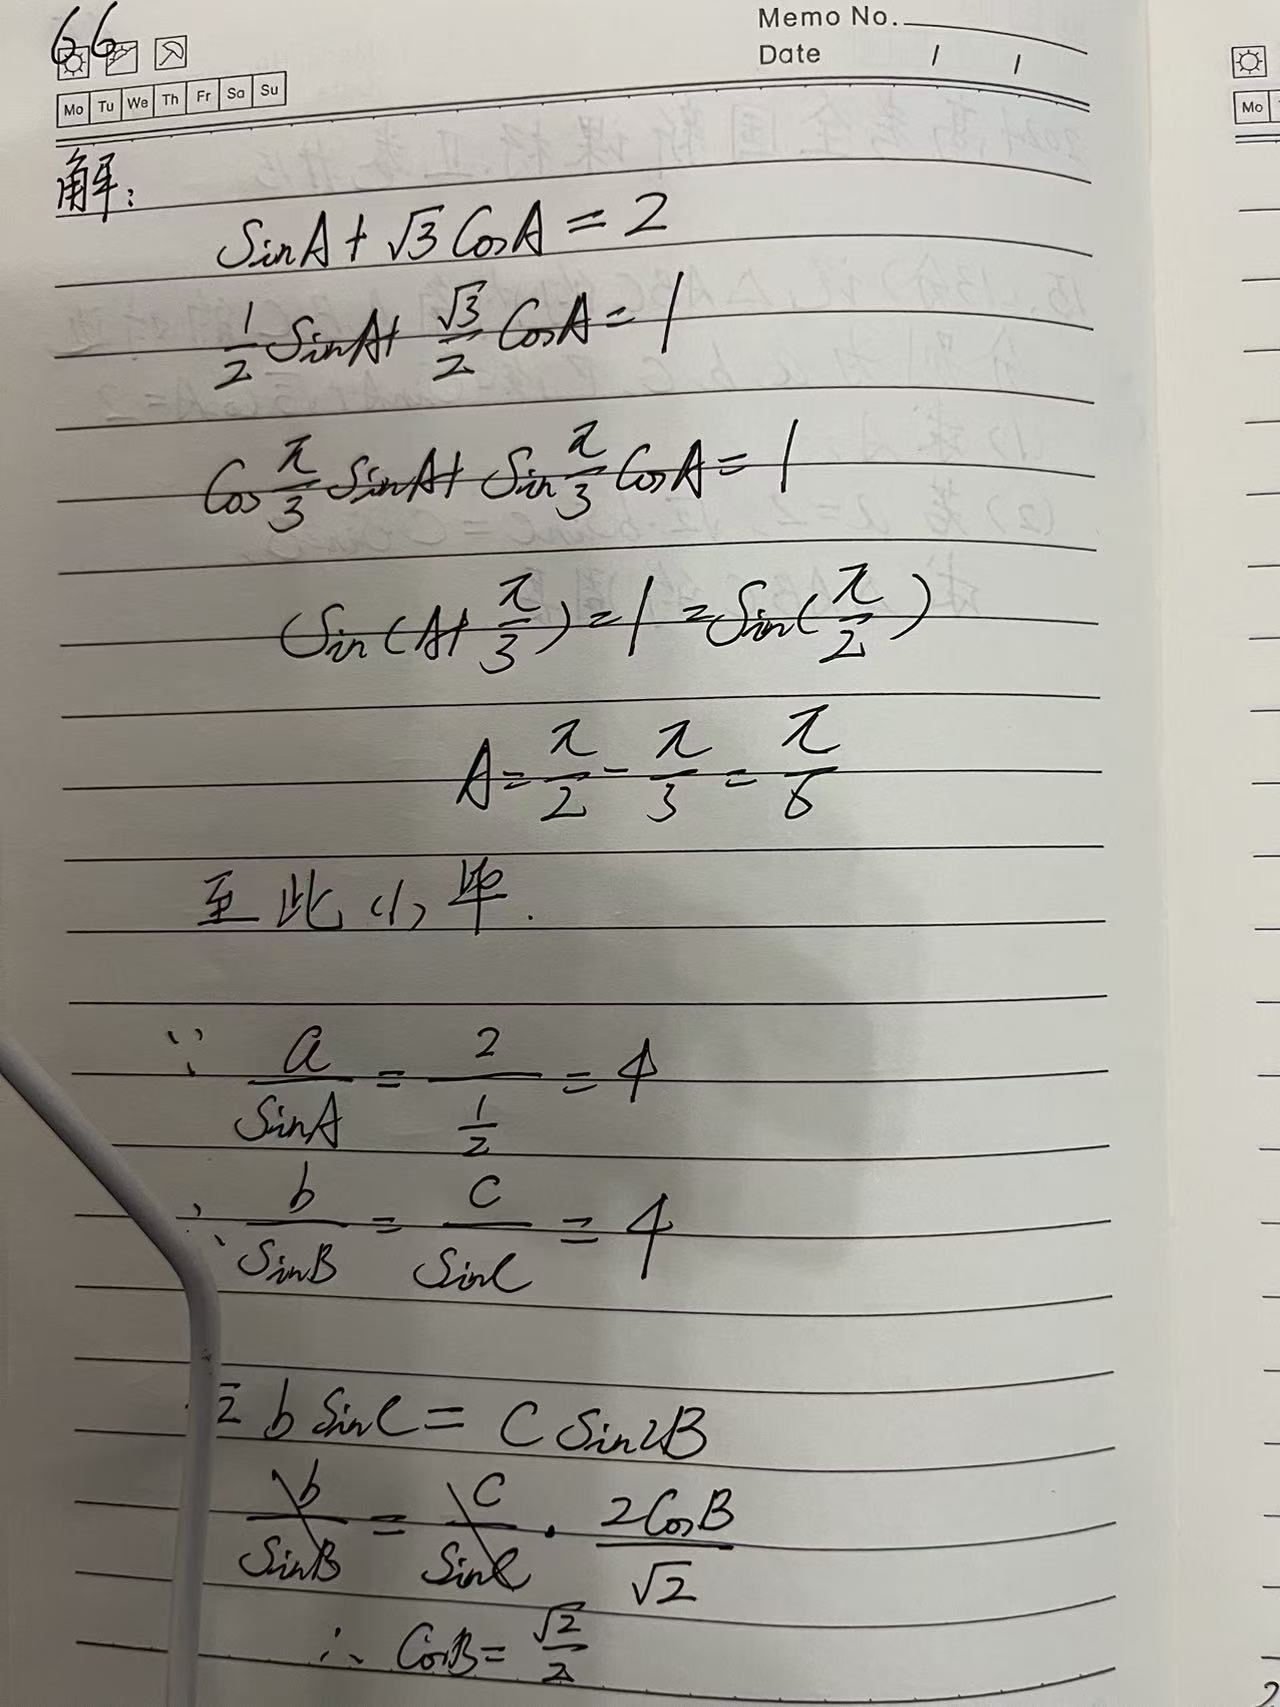 66
Memo No.
Date / /
Mo Tu We Th Fr Sa Su
Mo
解:
SinA+√3CosA=2
1/2 SinA+ √3/2 CosA=1
Cos π/3 SinA+ Sin π/3 CosA=1
Sin(A+ π/3)=1=Sin(π/2)
A= π/2 - π/3 = π/6
至此(1)毕.
∵ a/SinA = 2/(1/2) =4
∴ b/SinB = c/SinC = 4
2 b SinC= C Sin2B
b/SinB = c/SinC · 2CosB/√2
∴ CosB= √2/2